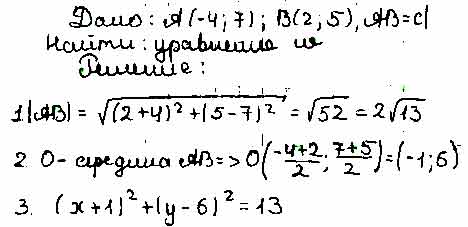 Дано: A(-4; 7); B(2; 5), AB=d
Найти: уравнение w
Решение:
1. |AB| = √((2+4)² + (5-7)²) = √52 = 2√13
2. O- середина AB => O((-4+2)/2; (7+5)/2) = (-1; 6)
3. (x+1)² + (y-6)² = 13